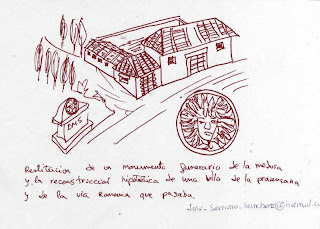 DMS
Restitucion de un monumento funerario de la medusa
y la reconstrucción hipotética de una billa de la provenzana
y de la vía Romana que pasaba.
José-serrano_sanchez@hotmail.c